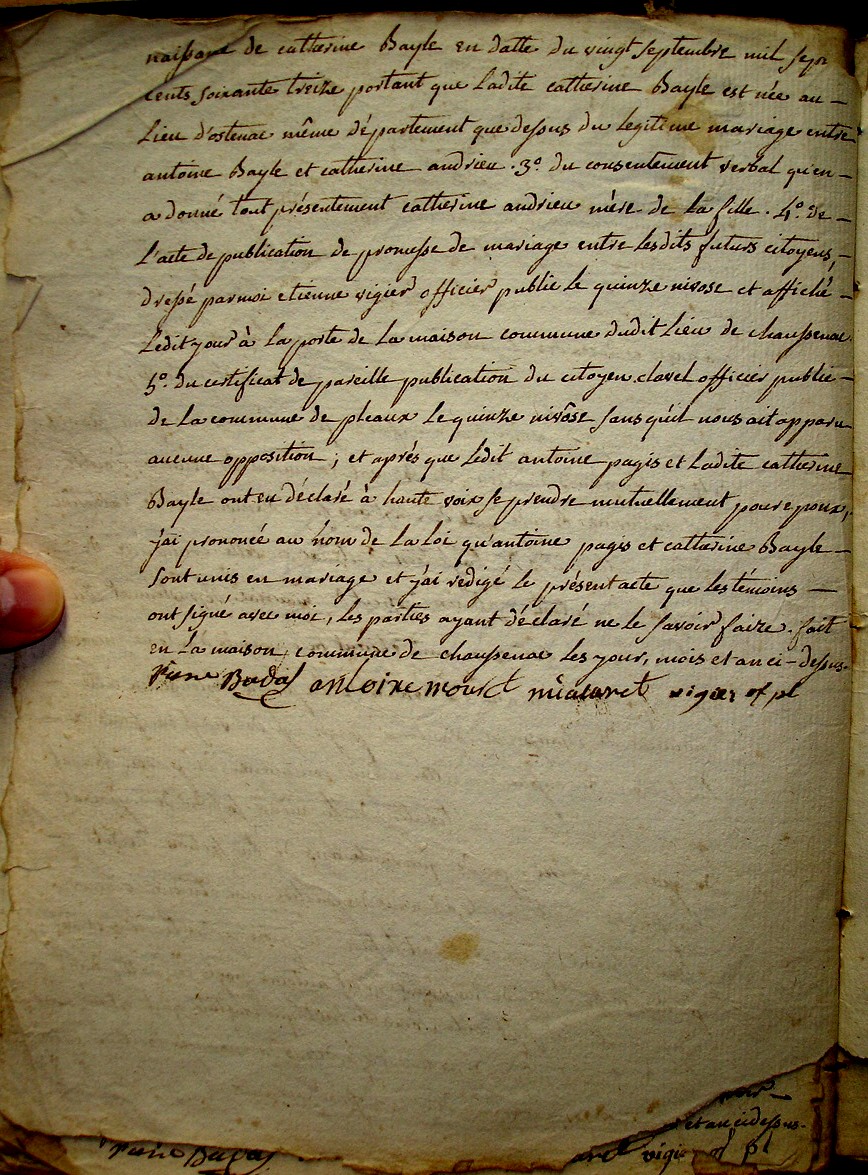 naissance de catherine Bayle en datte du vingt septembre mil sept
cents soixante treize portant que Ladite catherine Bayle est née au —
Lieu d'ostenac même département que dessus du legitime mariage entre
antoine Bayle et catherine andrieu. 3º. du consentement verbal qu'en —
a donné tout présentement catherine andrieu mère de La fille. 4º. de —
L'acte de publication de promesse de mariage entre lesdits futurs citoyens, —
dressé par moi etienne vigier officier public le quinze nivose et affiché —
Ledit jour à La porte de La maison commune dudit Lieu de chaussenac.
5º. du certificat de pareille publication du citoyen clavel officier public —
de La commune de pleaux Le quinze nivôse sans qu'il nous ait apparu
aucune opposition; et après que Ledit antoine pagis et Ladite catherine
Bayle ont eu déclaré à haute voix se prendre mutuellement pour epoux,
j'ai prononcé au nom de La Loi qu'antoine pagis et catherine Bayle —
sont unis en mariage et j'ai redigé le présent acte que les témoins —
ont signé avec moi, les parties ayant déclaré ne le savoir faire. fait
en La maison commune de chaussenac les jour, mois et an ci-dessus.
antoire vigier of pl
et an cidessus.
vigier of pl